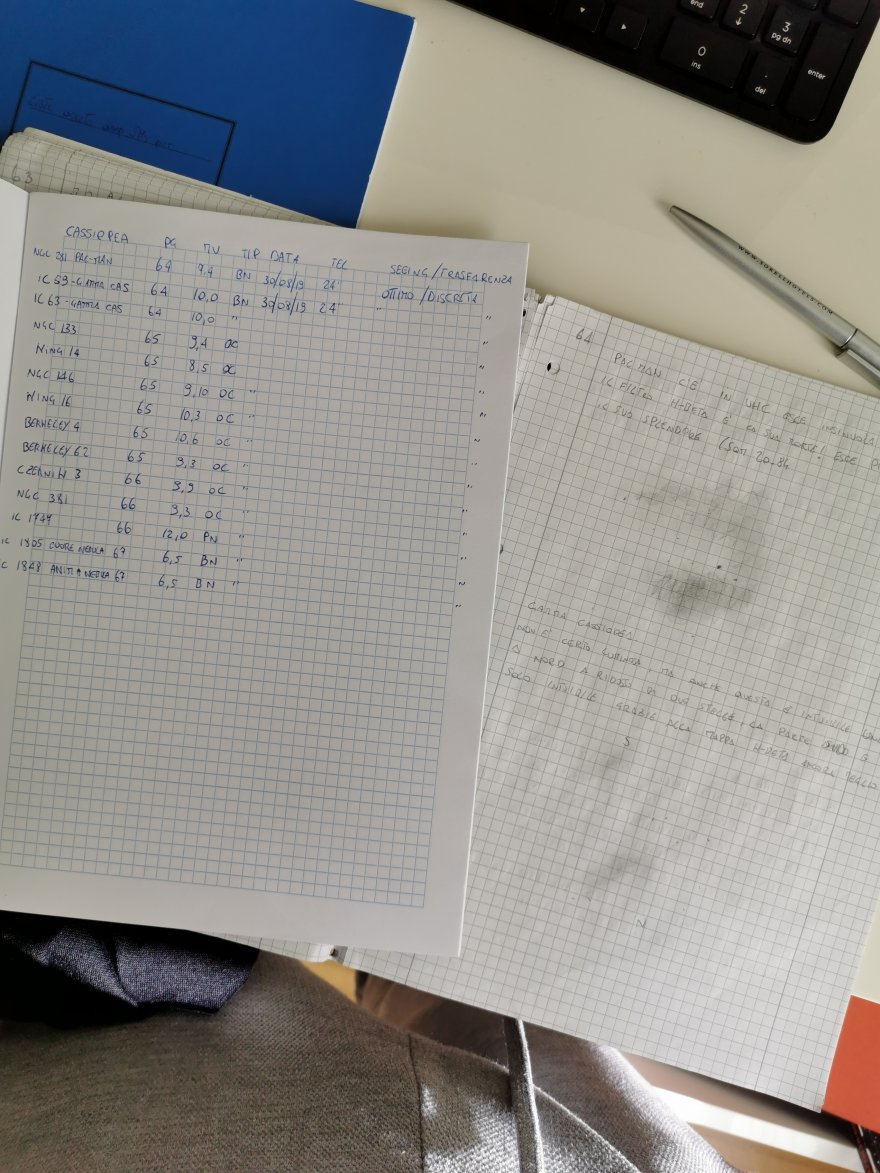 end
2
↓
3
pg dn
0
ins
.
del
enter
63
CASSIOPEA PG MV TIP DATA TEL SEEING/TRASPARENZA
NGC 281 PAC-MAN 64 7,4 BN 30/08/19 24" OTTIMO/DISCRETA
IC 59-GAMMA CAS 64 10,0 BN 30/08/19 24" " "
IC 63-GAMMA CAS 64 10,0 " "
NGC 133 65 9,4 OC "
KING 14 65 8,5 OC "
NGC 146 65 9,10 OC " "
KING 16 65 10,3 OC " "
BERKELEY 4 65 10,6 OC " "
BERKELEY 62 65 9,3 OC " "
CZERNIK 3 66 9,9 OC " "
NGC 381 66 9,3 OC " "
IC 1747 66 12,0 PN " "
IC 1805 CUORE NEBULA 67 6,5 BN " "
IC 1848 ANIMA NEBULA 67 6,5 BN " "
64
PACMAN C'È IN UHC ESCE
IL FILTRO H-BETA È LA SUA MORTE! ESCE
IL SUO SPLENDORE (SQM 20.84
GAMMA CASSIOPEA
NON È CERTO CONVINTA, MA ANCHE QUESTA È INTUIBILE
A NORD A RIDOSSO DI DUE STELLE, LA PARTE SUD È
SOLO INTUIBILE GRAZIE ALLA MAPPA H-BETA ANCORA
S
N